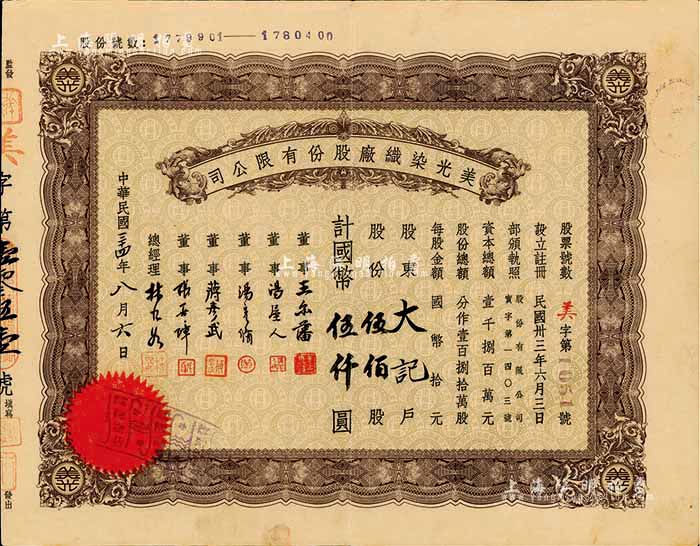 股份號數：1779901—1780400
美光染織廠股份有限公司
股票號數 美字第1051號
設立註冊 民國卅三年六月三日
部頒執照 股份有限公司實字第一四〇三號
資本總額 壹千捌百萬元
股份總額 分作壹百捌拾萬股
每股金額 國幣拾元
股東 大記 戶
股份 伍佰 股
計國幣 伍仟 圓
董事
董事
董事
董事 蔣彥武
董事
總經理
中華民國三四年八月六日
監發
美
字第壹零伍壹號
填寫
發出